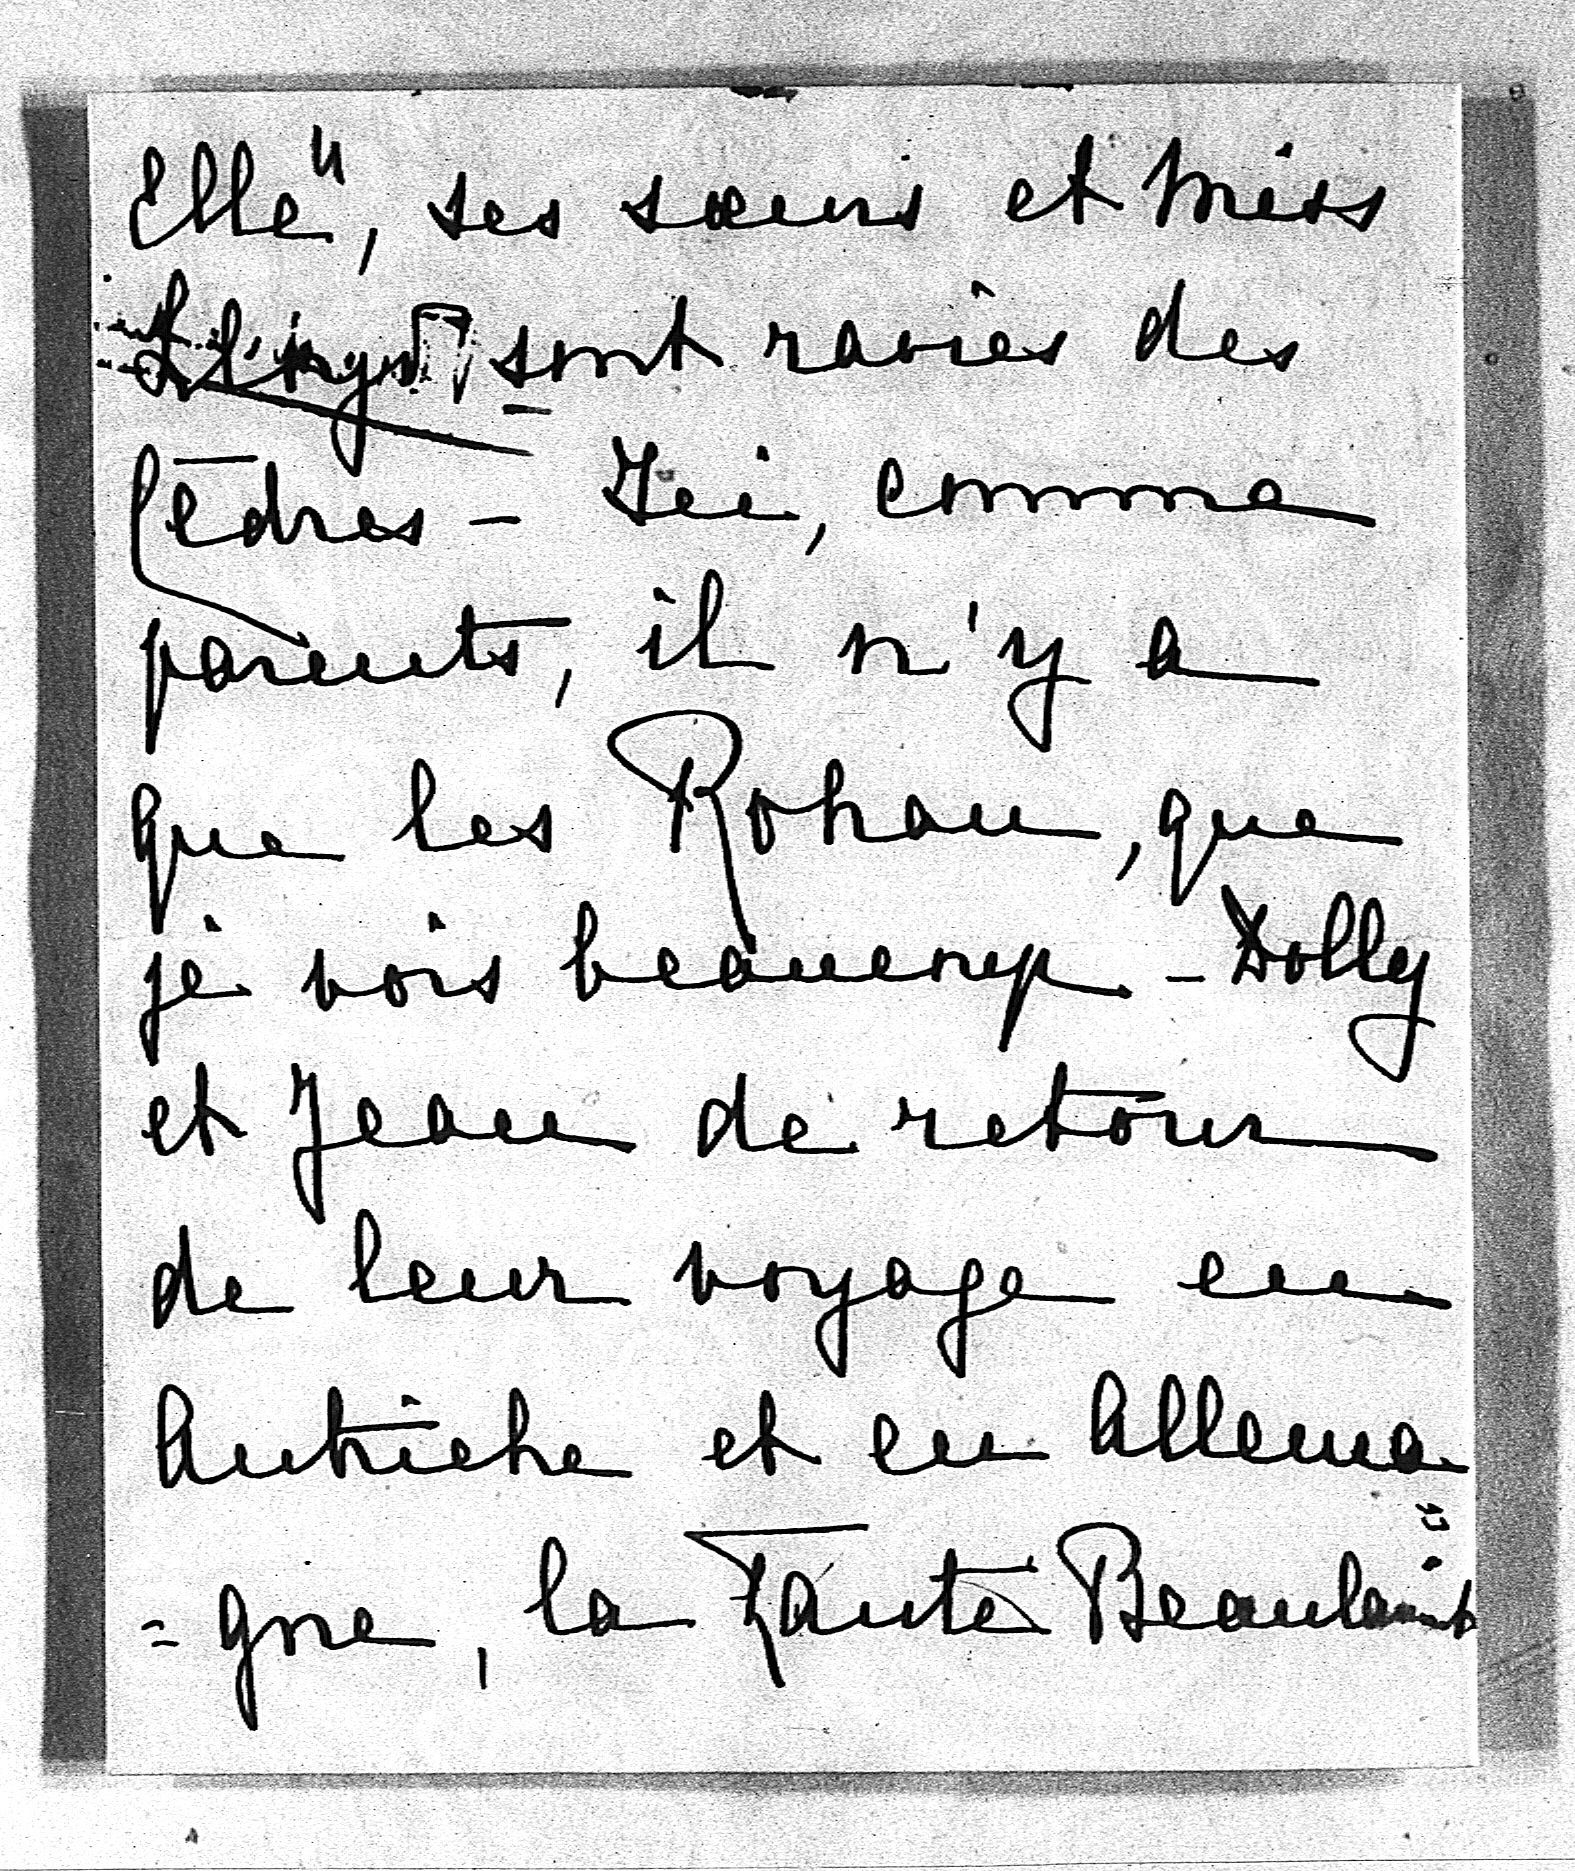 Elle", ses sœurs et Miss
sont ravies des
Cèdres - Ici, comme
parents, il n'y a
que les Rohan, que
je vois beaucoup - Dolly
et Jean de retour
de leur voyage en
Autriche et en Allema
= gne, la Tante Beaulaint